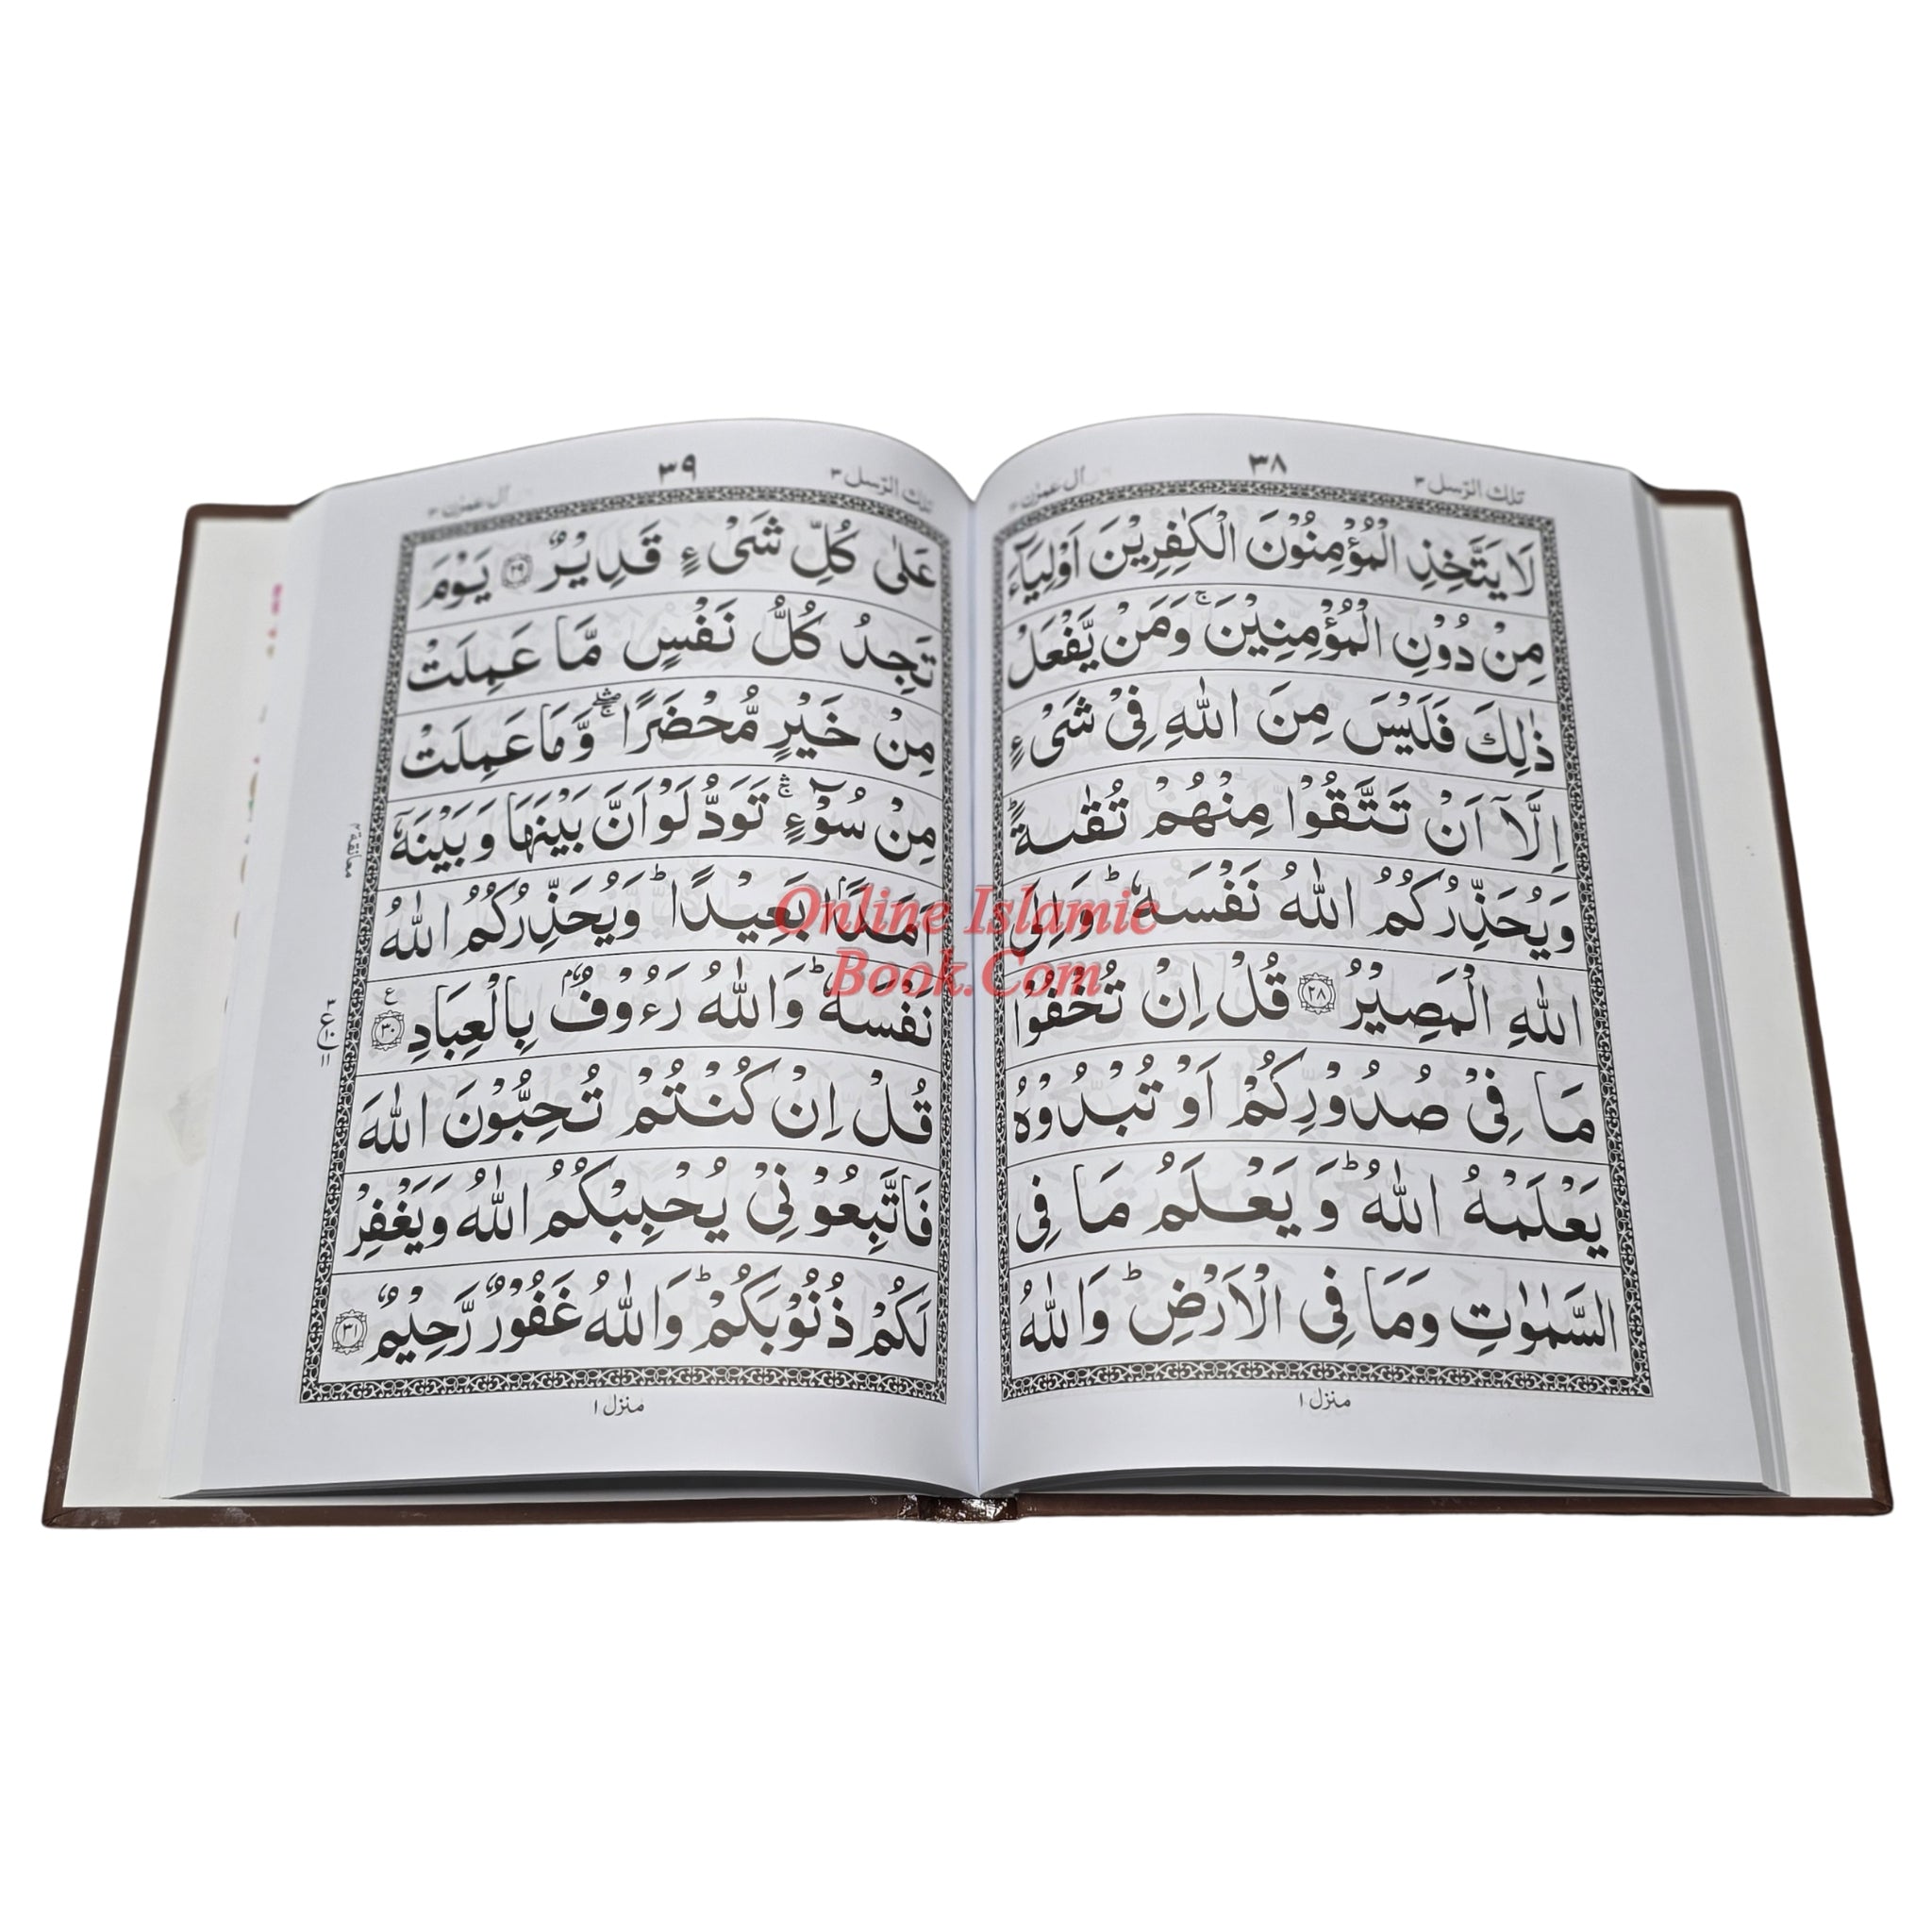 تلك الرسل ٣ ٣٨ آل عمرٰن ٣
لَا يَتَّخِذِ الْمُؤْمِنُوْنَ الْكٰفِرِيْنَ اَوْلِيَآءَ
مِنْ دُوْنِ الْمُؤْمِنِيْنَ ۚ وَمَنْ يَّفْعَلْ
ذٰلِكَ فَلَيْسَ مِنَ اللّٰهِ فِىْ شَىْءٍ
اِلَّاۤ اَنْ تَتَّقُوْا مِنْهُمْ تُقٰىةً ؕ
وَيُحَذِّرُكُمُ اللّٰهُ نَفْسَهٗ ؕ وَاِلَى
اللّٰهِ الْمَصِيْرُ ﴿٢٨﴾ قُلْ اِنْ تُخْفُوْا
مَا فِىْ صُدُوْرِكُمْ اَوْ تُبْدُوْهُ
يَعْلَمْهُ اللّٰهُ ؕ وَيَعْلَمُ مَا فِى
السَّمٰوٰتِ وَمَا فِى الْاَرْضِ ؕ وَاللّٰهُ
منزل ١
تلك الرسل ٣ ٣٩ آل عمرٰن ٣
عَلٰى كُلِّ شَىْءٍ قَدِيْرٌ ﴿٢٩﴾ يَوْمَ
تَجِدُ كُلُّ نَفْسٍ مَّا عَمِلَتْ
مِنْ خَيْرٍ مُّحْضَرًا ۛۖۚ وَّمَا عَمِلَتْ
مِنْ سُوْٓءٍ ۛۚ تَوَدُّ لَوْ اَنَّ بَيْنَهَا وَبَيْنَهٗۤ
اَمَدًاۢ بَعِيْدًا ؕ وَيُحَذِّرُكُمُ اللّٰهُ
نَفْسَهٗ ؕ وَاللّٰهُ رَءُوْفٌۢ بِالْعِبَادِ ﴿٣٠﴾ ع
قُلْ اِنْ كُنْتُمْ تُحِبُّوْنَ اللّٰهَ
فَاتَّبِعُوْنِىْ يُحْبِبْكُمُ اللّٰهُ وَيَغْفِرْ
لَكُمْ ذُنُوْبَكُمْ ؕ وَاللّٰهُ غَفُوْرٌ رَّحِيْمٌ ﴿٣١﴾
منزل ١
معانقة ٢
٣ ع ١٠ ١١
Online Islamic
Book.Com